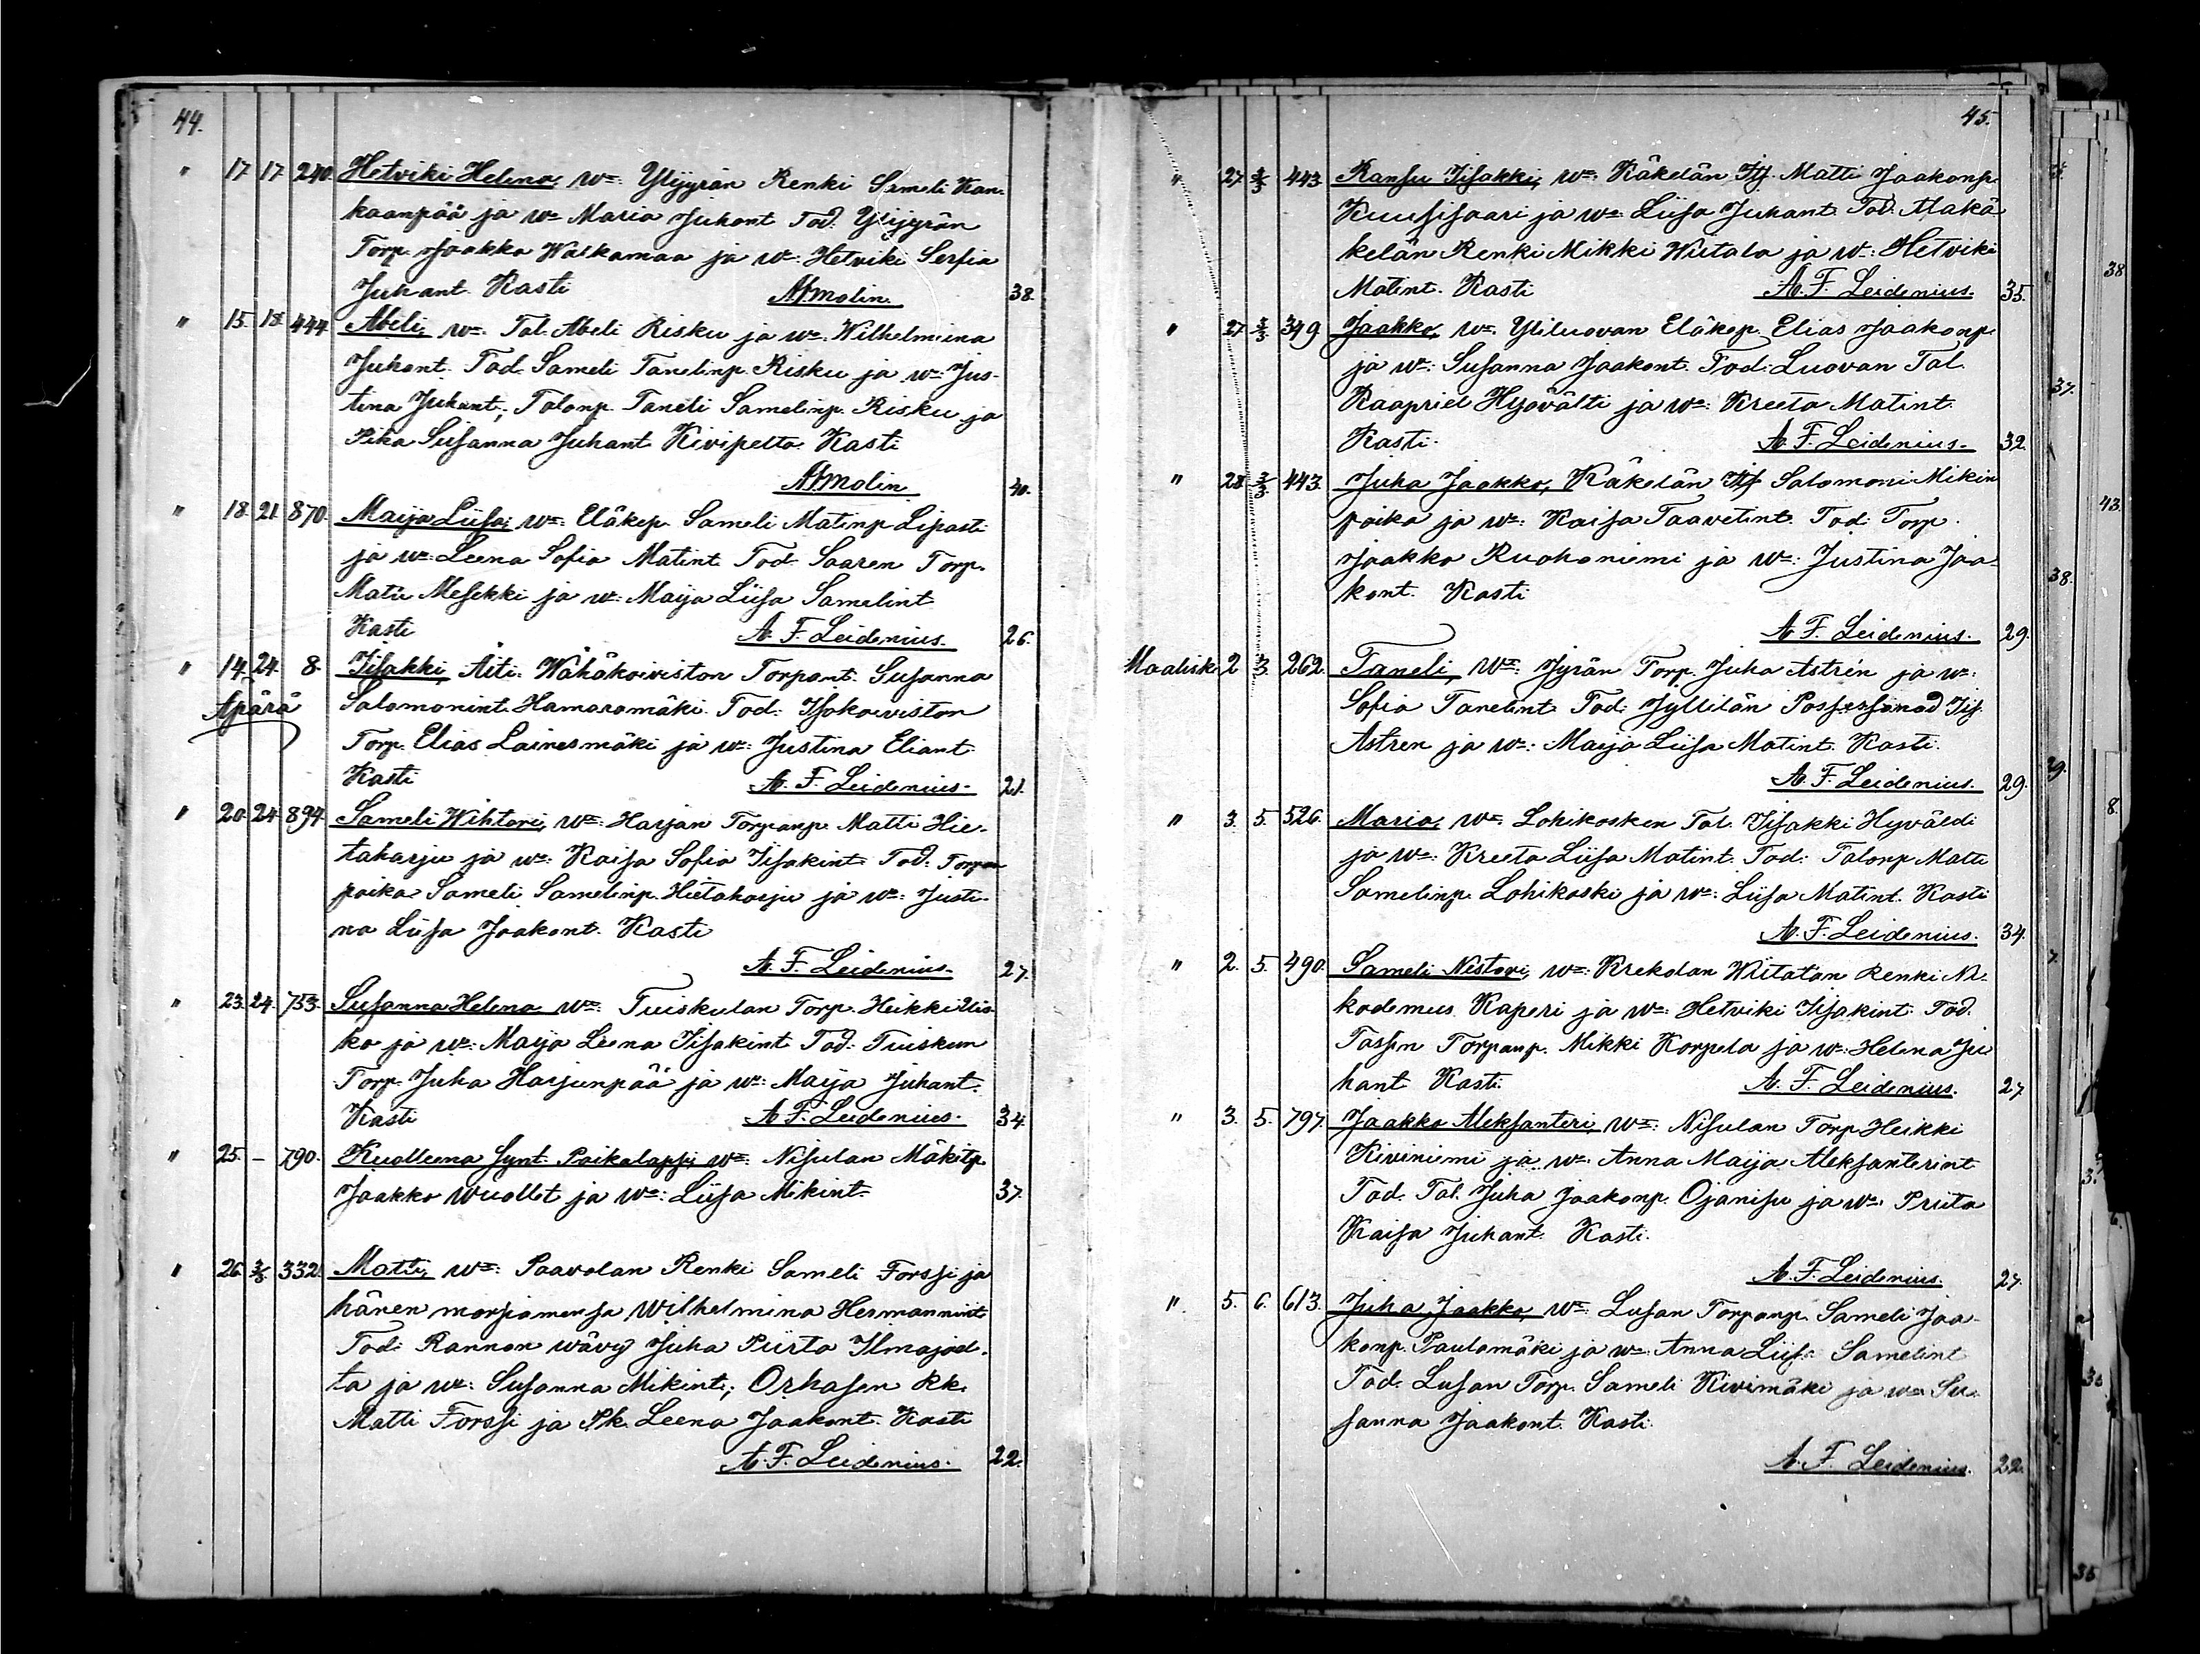 44.
" 17 17 240. Hetviki Helena, Wm: Ylijyrän Renki Sameli Kan-
kaanpää ja wo Maria Juhant Tod. Ylijyrän
Torp. Jaakko Walkamaa ja w: Hetviki Serfia
Juhant. Kasti AfMolin. 38.
" 15. 18. 444. Abeli, wm: Tal. Abeli Risku ja wo: Wilhelmiina
Juhant. Tod. Sameli Tanelinp. Risku ja w: Jus-
tina Juhant; Talonp. Taneli Samelinp. Risku ja
Pika Susanna Juhant Kivipelto. Kasti
AfMolin 40.
" 18. 21. 870. Maija Liisa; wm: Eläkep. Sameli Matinp Lipasti
ja wo: Leena Sofia Matint. Tod. Saaren Torp.
Matti Mesekki ja w: Maija Liisa Samelint
Kasti A. F. Leidenius. 26.
" 14. 24. 8. Iisakki, Äiti: Wähäkoiviston Torpant. Susanna
Äpärä Salomonint. Hamaramäki. Tod: Isokoiviston
Torp. Elias Lainesmäki ja w: Justina Eliant
Kasti A. F. Leidenius. 21.
" 20. 24. 894. Sameli Wihtori, wm: Harjan Torpanp. Matti Hie-
taharju ja wo: Kaisa Sofia Iisakint. Tod: Torpan
poika Sameli Samelinp. Hietaharju ja wo: Justi-
na Liisa Jaakont. Kasti
A. F. Leidenius. 27.
" 23. 24. 753. Susanna Helena wm: Tuiskulan Torp. Heikki Uis
ko ja wo: Maija Leena Iisakint Tod: Tuiskun
Torp. Juha Harjunpää ja wo: Maija Juhant.
Kasti A. F. Leidenius. 34.
" 25. — 790. Kuolleena synt. Poikalapsi, wm: Nisulan Mäkitp
Jaakko Wuollet ja wo: Liisa Mikint. 37.
" 26. 2/3 332. Matti, wm: Paavolan Renki Sameli Forssi ja
hänen morsiamensa Wilhelmina Hermannint
Tod: Rannan wävy Juha Piirto Ilmajoel-
ta ja wo: Susanna Mikint; Orhasen Rk.
Matti Forssi ja Pk. Leena Jaakont. Kasti
A. F. Leidenius. 22.
45.
" 27. 2/3 443. Ransu Iisakki, wm: Käkelän Itf. Matti Jaakonp.
Kuusisaari ja wo: Liisa Juhant. Tod: Makä-
kelän Renki Mikki Wiitala ja w: Hetviki
Matint. Kasti A. F. Leidenius. 35.
" 27. 2/3 349. Jaakko, wm: Yliluovan Eläkep. Elias Jaakonp.
ja wo: Susanna Jaakont. Tod: Luovan Tal.
Kaapriel Hyövälti ja wo: Kreeta Matint.
Kasti. A. F. Leidenius. 32.
" 28. 2/3 443. Juha Jaakko, Käkelän Itf Salomoni Mikin
poika ja wo: Kaisa Taavetint. Tod: Torp.
Jaakko Ruohoniemi ja wo: Justina Jaa-
kont. Kasti
A. F. Leidenius. 29.
Maalisk. 2. 3. 262. Taneli, wm: Jyrän Torp. Juha Astrén ja wo:
Sofia Tanelint. Tod: Jyllilän Possessionad Iis.
Astren ja wo: Maija Liisa Matint. Kasti.
A. F. Leidenius. 29.
" 3. 5. 526. Maria, wm: Lohikosken Tal. Iisakki Hyväldi
ja wo: Kreeta Liisa Matint. Tod: Talonp. Matti
Samelinp. Lohikoski ja wo: Liisa Matint. Kasti
A. F. Leidenius. 34.
" 2. 5. 490. Sameli Nestori, wm: Krekolan Wiitatan Renki Ni-
kodemus Kaperi ja wo: Hetviki Iisakint. Tod.
Tassin Torpanp. Mikki Korpela ja w: Helena Ju
hant Kasti. A. F. Leidenius. 27
" 3. 5. 797. Jaakko Aleksanteri, wm: Nisulan Torp Heikki
Kiviniemi ja wo: Anna Maija Aleksanterint
Tod. Tal. Juha Jaakonp. Ojanisu ja wo: Priita
Kaisa Juhant. Kasti.
A. F. Leidenius. 27.
" 5. 6. 613. Juha Jaakko, wm: Lusan Torpanp. Sameli Jaa-
konp. Paulamäki ja wo: Anna Liisa Samelint
Tod. Lusan Torp. Sameli Kivimäki ja wo: Su-
sanna Jaakont. Kasti.
A. F. Leidenius. 22.